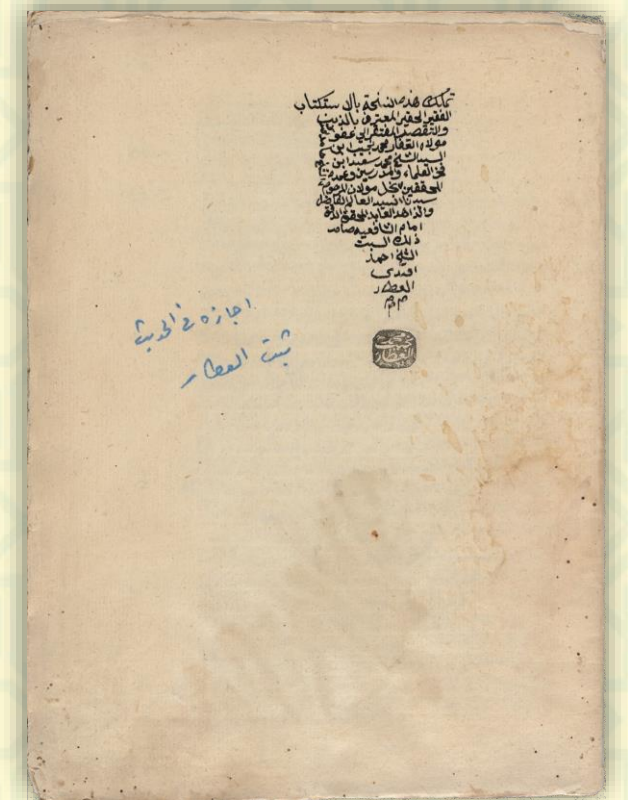 تملك هذه النسخة بالاستكتاب
الفقير الحقير المعترف بالذنب
والتقصير المفتقر الى عفو
مولاه الغفار محمد نجيب ابن
السيد الشيخ محمد سعيد ابن
فخر العلماء والمدرسين وعمدة
المحققين نجل مولانا المرحوم
سيدنا السيد العالم الفاضل
والزاهد العابد المحقق
امام الشافعيه صاحب
ذلك الثبت
الشيخ احمد
افندي
العطار
محمد نجيب
العطار
اجازه في الحديث
ثبت العطار